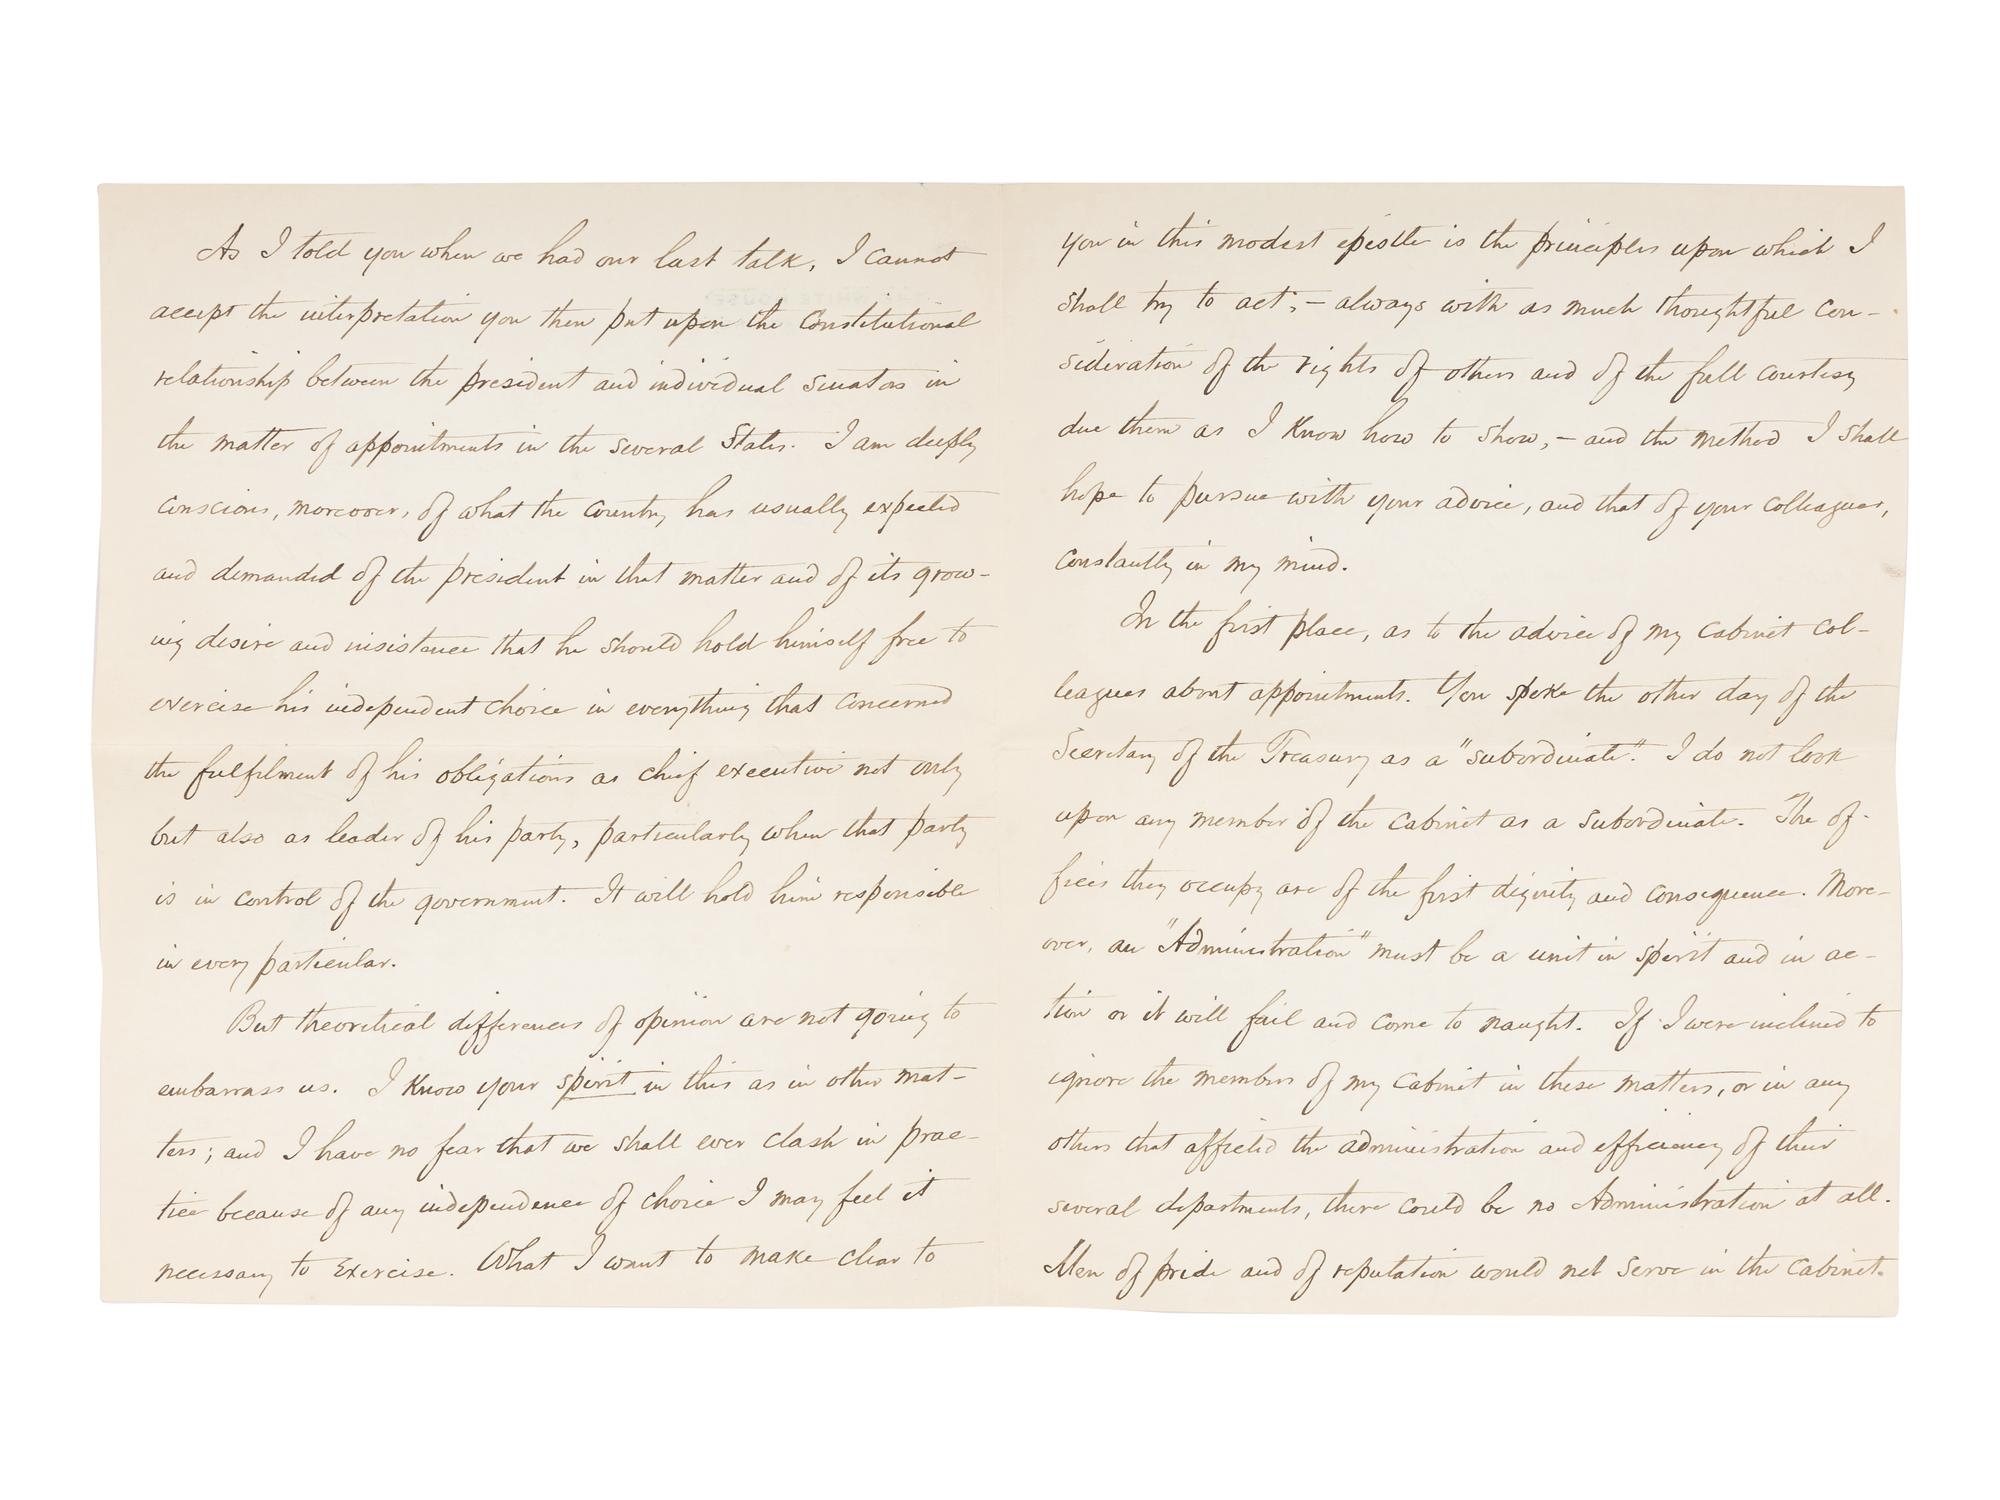 As I told you when we had our last talk, I cannot
accept the interpretation you then put upon the constitutional
relationship between the president and individual senators in
the matter of appointments in the several States. I am deeply
conscious, moreover, of what the country has usually expected
and demanded of the president in that matter and of its grow-
ing desire and insistence that he should hold himself free to
exercise his independent choice in everything that concerned
the fulfilment of his obligations as chief executive not only
but also as leader of his party, particularly when that party
is in control of the government. It will hold him responsible
in every particular.
But theoretical differences of opinion are not going to
embarrass us. I know your spirit in this as in other mat-
ters; and I have no fear that we shall ever clash in prac-
tice because of any independence of choice I may feel it
necessary to exercise. What I want to make clear to
you in this modest epistle is the principles upon which I
shall try to act, – always with as much thoughtful con-
sideration of the rights of others and of the full courtesy
due them as I know how to show, – and the method I shall
hope to pursue with your advice, and that of your colleagues,
constantly in my mind.
In the first place, as to the advice of my cabinet col-
leagues about appointments. You spoke the other day of the
Secretary of the Treasury as a "subordinate". I do not look
upon any member of the cabinet as a subordinate. The of-
fices they occupy are of the first dignity and consequence. More-
over, an "Administration" must be a unit in spirit and in ac-
tion or it will fail and come to naught. If I were inclined to
ignore the members of my cabinet in these matters, or in any
others that affected the administration and efficiency of their
several departments, there could be no Administration at all.
Men of pride and of reputation would not serve in the cabinet.